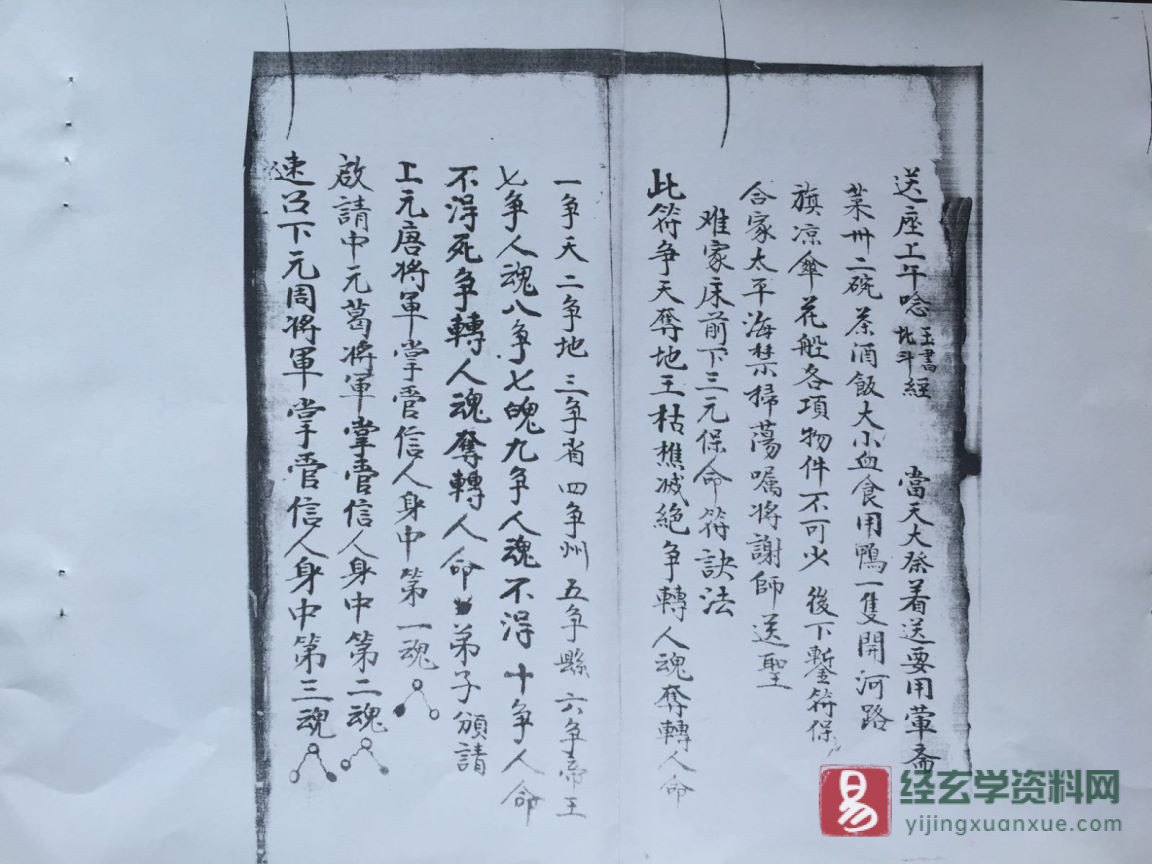 送座上午唸玉書北斗經　當天大祭着送要用葷齋
菜卅二碗茶酒飯大小血食用鴨一隻開河路
旗凉傘花船各項物件不可少　後下鏨符保
合家太平海禁掃蕩嘱将謝師送聖
难家床前下三元保命符訣法
此符争天奪地王枯樵滅絕争轉人魂奪轉人命
一争天二争地三争省四争州五争縣六争帝王
七争人魂八争七魄九争人魂不淂十争人命
不淂死争轉人魂奪轉人命弟子頒請
上元唐将軍掌管信人身中第一魂
啟請中元葛将軍掌管信人身中第二魂
速召下元周将軍掌管信人身中第三魂
易
经玄学资料网
yijingxuanxue.com